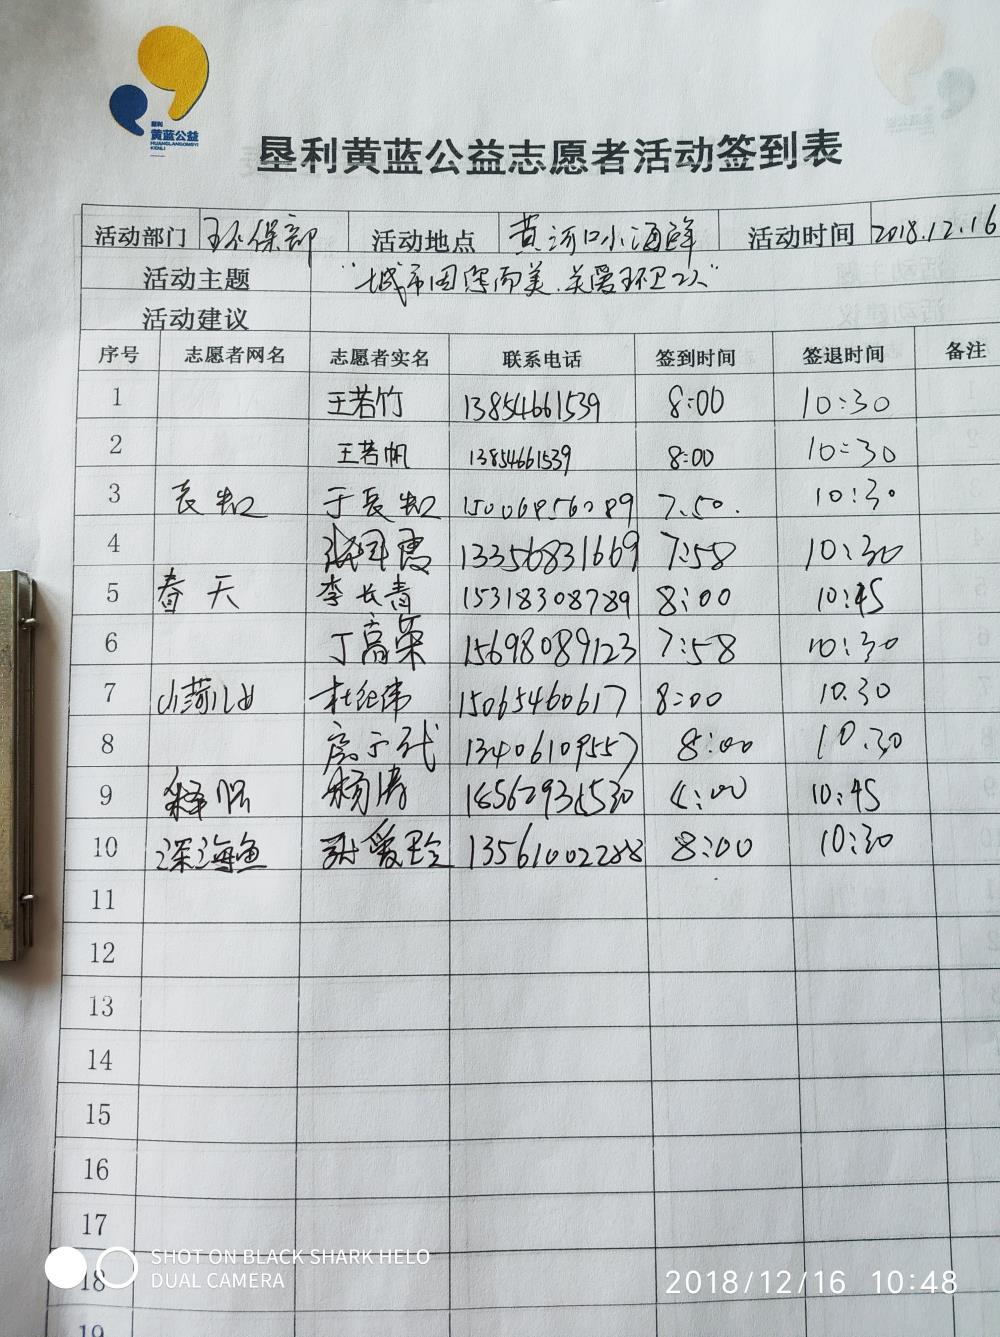 垦利
黄蓝公益
HUANGLANGONGYI
KENLI
垦利黄蓝公益志愿者活动签到表
活动部门 环保部 活动地点 黄河口小海鲜 活动时间 2018.12.16
活动主题 "城市因您而美.关爱环卫工人"
活动建议
序号 志愿者网名 志愿者实名 联系电话 签到时间 签退时间 备注
1 王若竹 13854661539 8:00 10:30
2 王若帆 13854661539 8:00 10:30
3 长虹 于长虹 15006856089 7.50. 10:30
4 13356831669 7:58 10:30
5 春天 李长青 15318308789 8:00 10:45
6 丁高荣 15698089123 7:58 10:30
7 杜红伟 15065460617 8:00 10.30
8 13406109557 8:00 10.30
9 杨涛 10:45
10 深海鱼 13561002288 8:00 10:30
11
12
13
14
15
16
17
18
19
SHOT ON BLACK SHARK HELO
DUAL CAMERA
2018/12/16 10:48